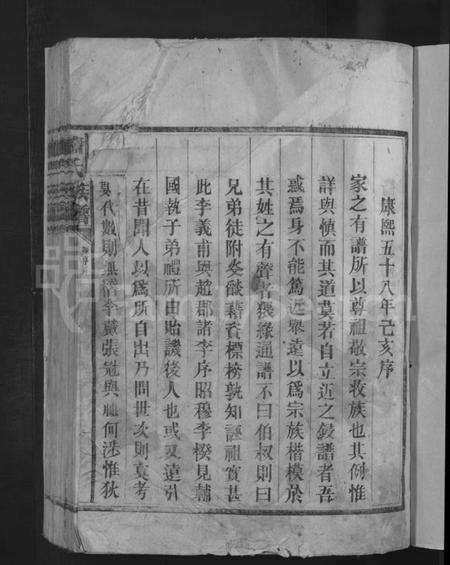 康熙五十八年己亥序
家之有譜所以尊祖敬宗收族也其例惟
詳與慎而其道莫若自立近之鋟譜者吾
惑焉身不能篤近舉遠以為宗族楷模於
其姓之有聲者猥錄通譜不曰伯叔則曰
兄弟徒附參餤藉資標榜孰知誣祖實甚
此李義甫與趙郡諸李序昭穆李揆見輔
國執子弟禮所由貽譏後人也或又遠引
在昔聞人以為所自出乃問世次則莫考
代數則無 李戴張冠與 何涉惟狄